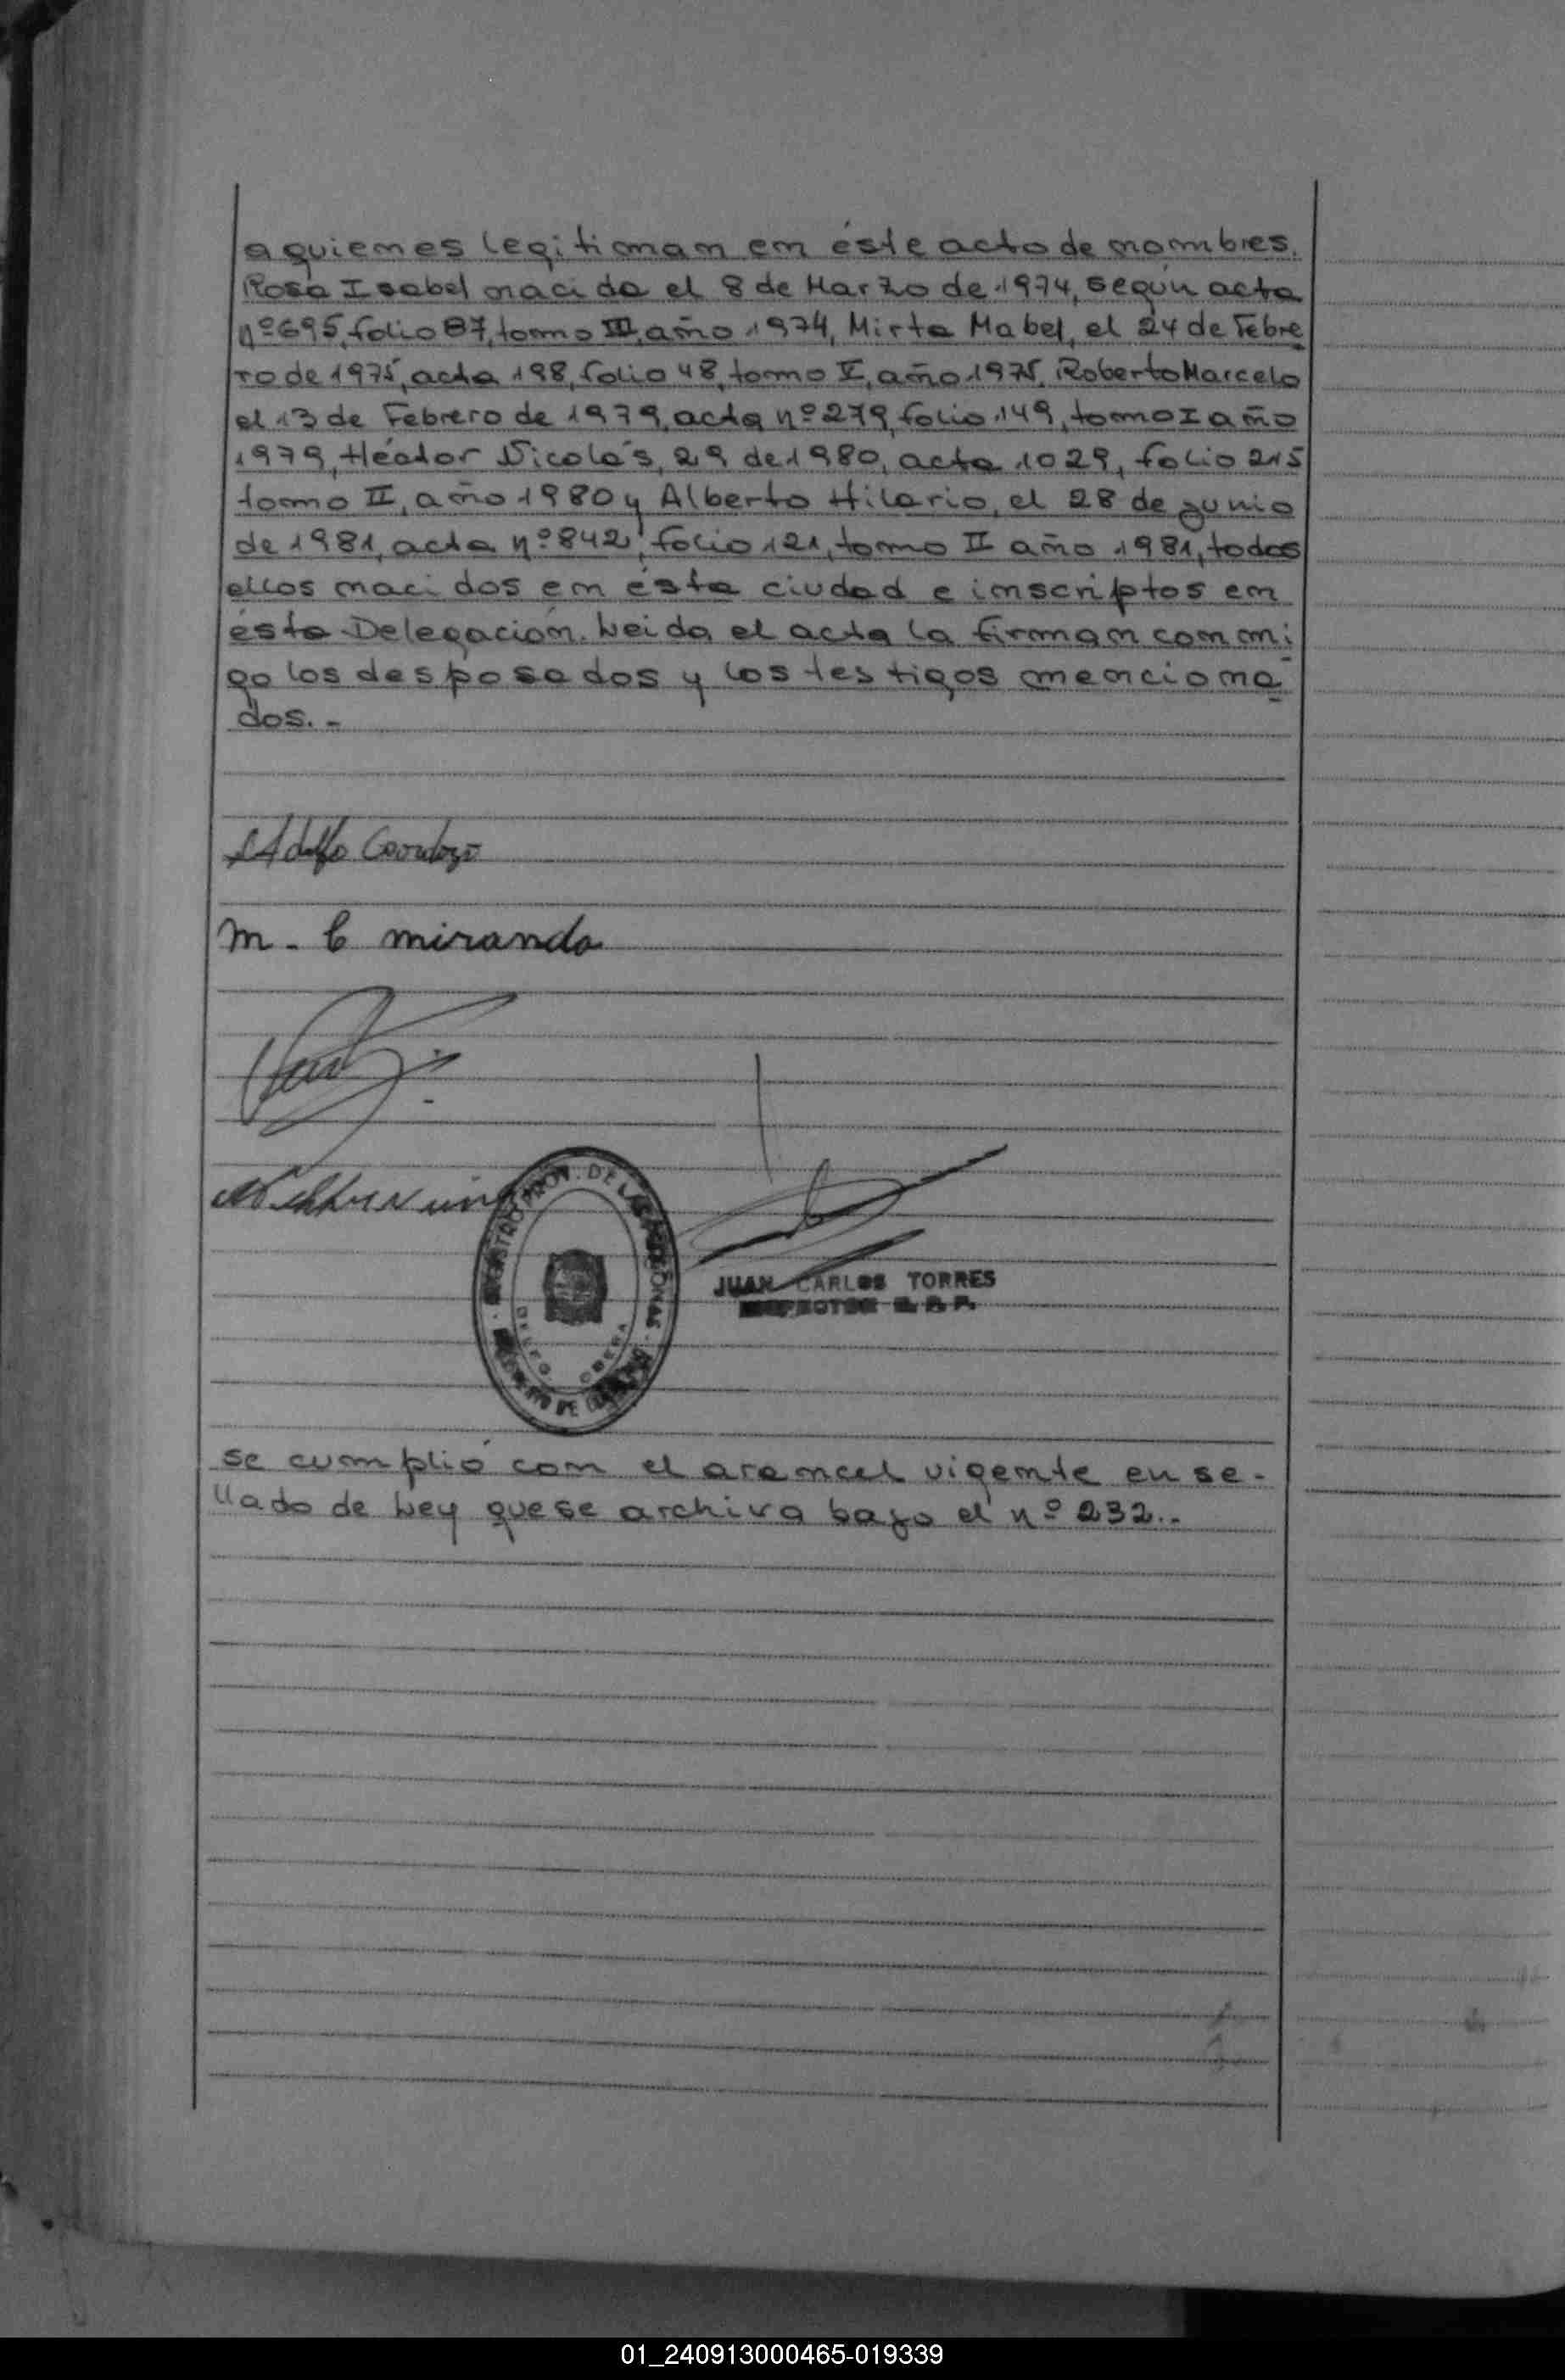 a quienes legitiman en éste acto de nombres.
Rosa Isabel nacida el 8 de Marzo de 1974, según acta
nº695, folio 87, tomo III, año 1974, Mirta Mabel, el 24 de Febre
ro de 1975, acta 198, folio 48, tomo V, año 1975, Roberto Marcelo
el 13 de Febrero de 1979, acta nº 279, folio 149, tomo I año
1979, Héctor Nicolás, 29 de 1980, acta 1029, folio 215
tomo II, año 1980 y Alberto Hilario, el 28 de Junio
de 1981, acta nº 842, folio 121, tomo II año 1981, todos
ellos nacidos en ésta ciudad e inscriptos en
ésta Delegación. Leida el acta la firman conmi
go los desposados y los testigos menciona
dos.-
Adolfo Cardozo
M. C miranda
PROV. DE LAS
OBERA
JUAN CARLOS TORRES
INSPECTOR R. P. P.
se cumplió con el arancel vigente en se-
llado de Ley que se archiva bajo el nº 232.-
01_240913000465-019339